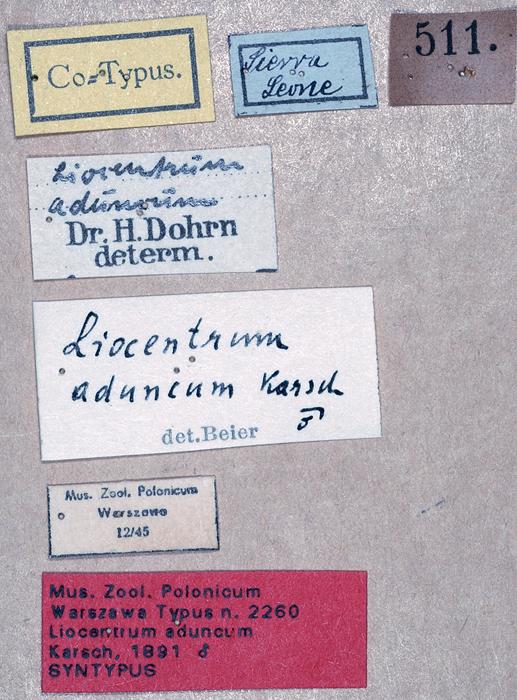 Co=Typus.
Sierra
Leone
511.
Liocentrum
aduncum
Dr. H. Dohrn
determ.
Liocentrum
aduncum Karsch
♂
det. Beier
Mus. Zool. Polonicum
Warszawa
12/45
Mus. Zool. Polonicum
Warszawa Typus n. 2260
Liocentrum aduncum
Karsch, 1891 ♂
SYNTYPUS